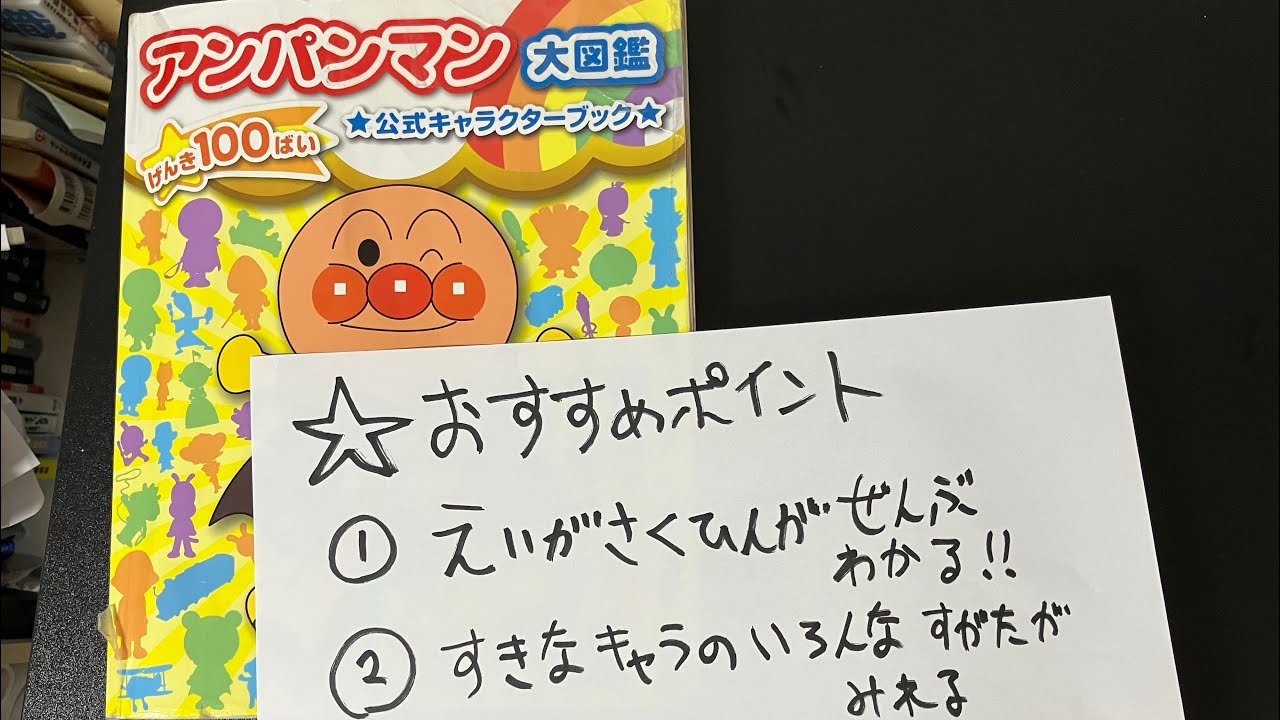 アンパンマン大図鑑
★公式キャラクターブック★
げんき100ばい
☆おすすめポイント
① えいがさくひんがぜんぶ
わかる!!
② すきなキャラのいろんなすがたが
みれる